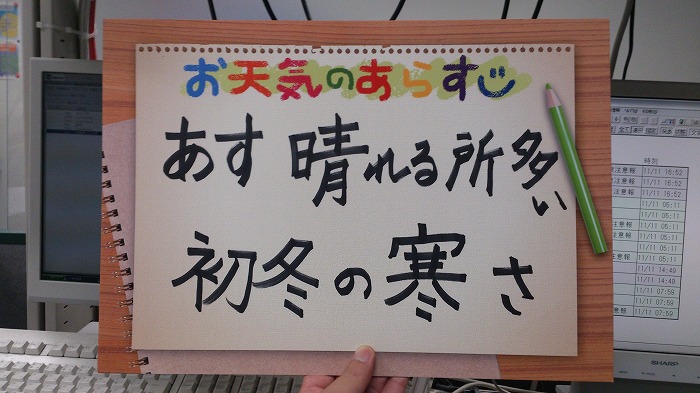 お天気のあらすじ
あす 晴れる所多い
初冬の寒さ
時刻
注意報 11/11 16:52
注意報 11/11 16:52
注意報 11/11 16:52
11/11 05:11
注意報 11/11 05:11
11/11 05:11
11/11 05:11
11/11 14:49
11/11 14:49
11/11 07:59
注意報 11/11 07:59
SHARP